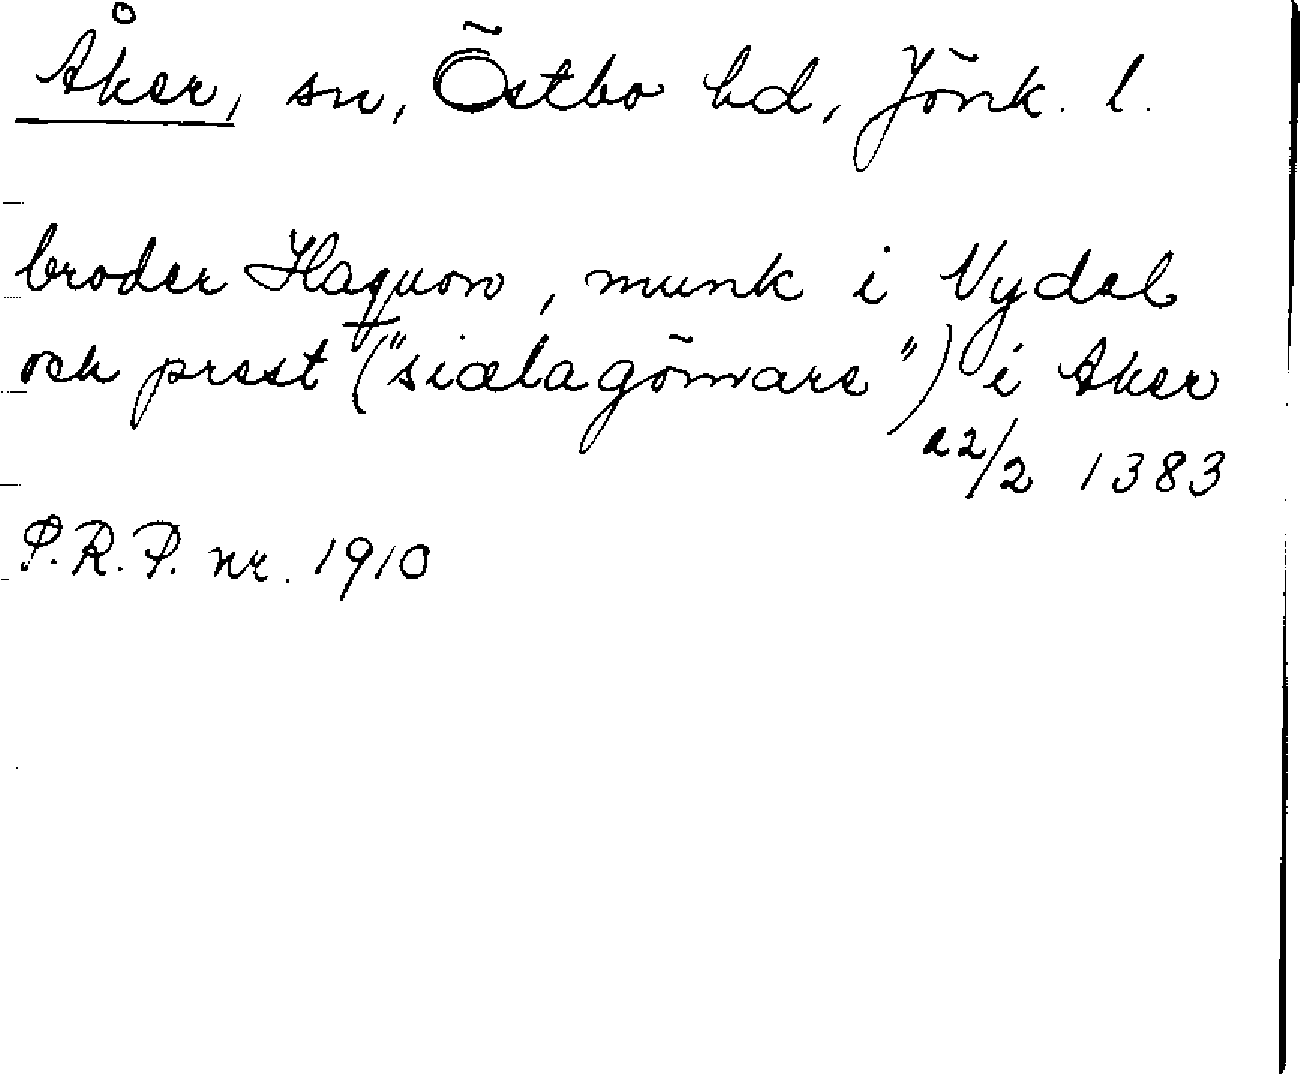 Åker, sn, Östbo hd, Jönk. l.
broder Haquon, munk i Nydal
och prest ("siælagömare") i Aker
22/2 1383
P.R.P. nr. 1910